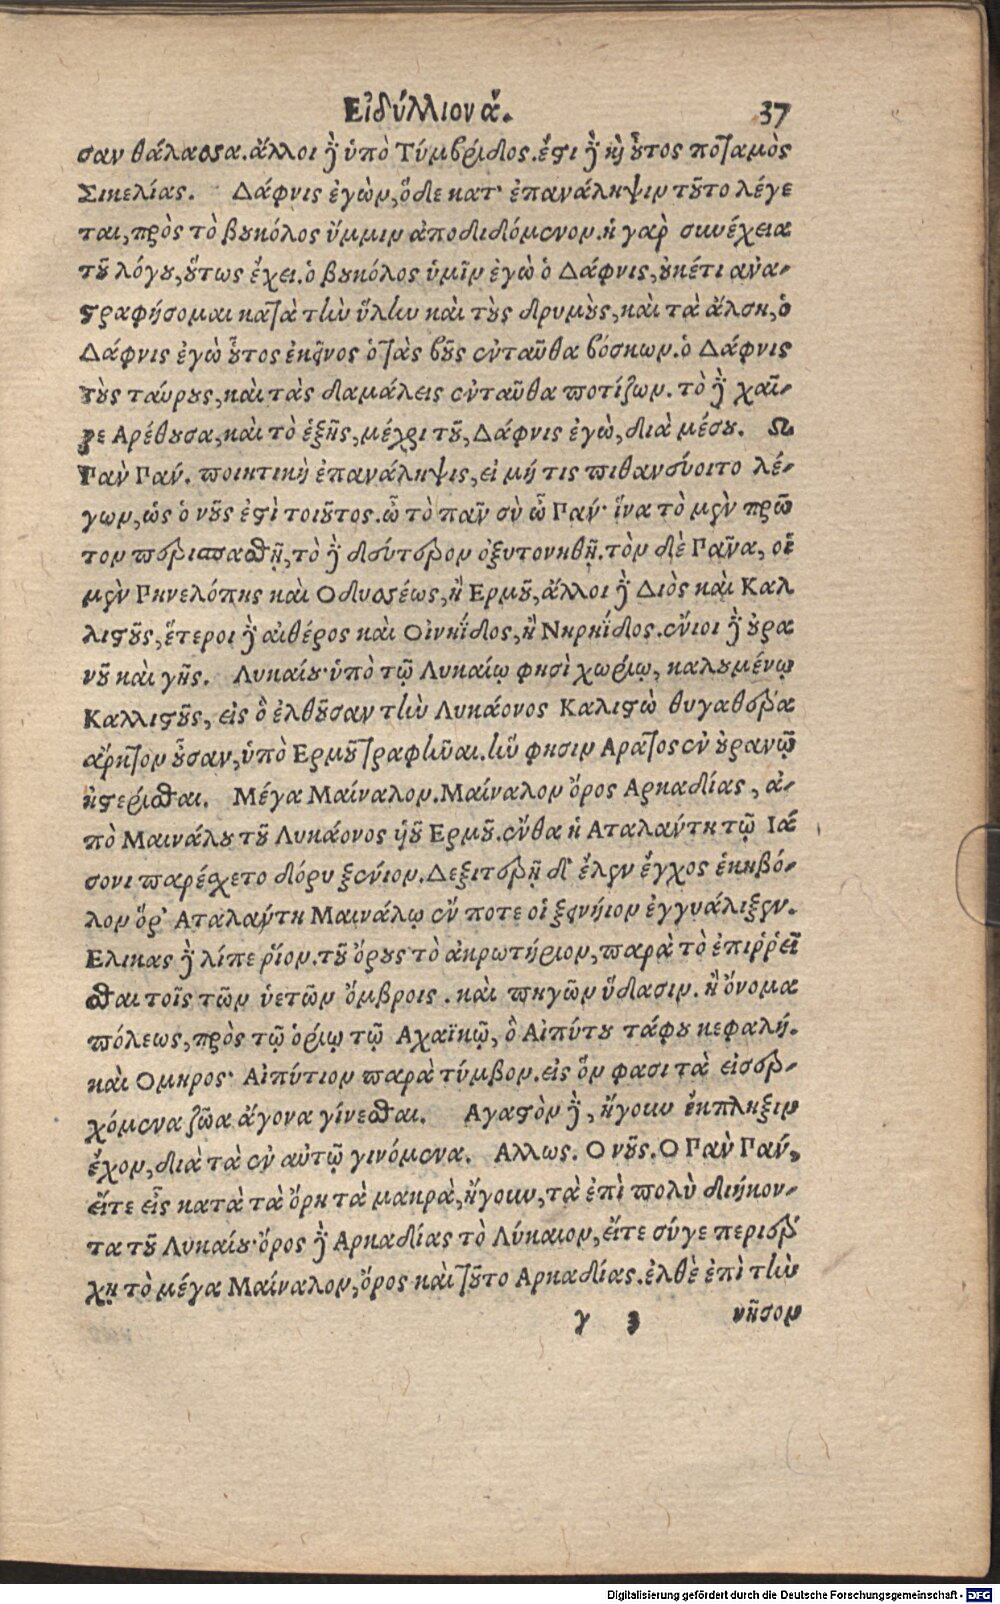 Εἰδύλλιον ά. 37
σαν θάλασσα. ἄλλοι δὲ ὑπὸ Τύμβριδος. ἔστι δὲ καὶ οὗτος ποταμὸς
Σικελίας. Δάφνις ἐγὼν, ὅδε κατ' ἐπανάληψιν τοῦτο λέγε
ται, πρὸς τὸ βουκόλος ὔμμιν ἀποδιδόμενον. ἡ γὰρ συνέχεια
τοῦ λόγου, οὕτως ἔχει. ὁ βουκόλος ὑμῖν ἐγὼ ὁ Δάφνις, οὐκέτι ἀνα-
στραφήσομαι κατὰ τὴν ὕλην καὶ τοὺς δρυμοὺς, καὶ τὰ ἄλση, ὁ
Δάφνις ἐγὼ οὗτος ἐκεῖνος ὁ τὰς βοῦς ἐνταῦθα βόσκων. ὁ Δάφνις
τοὺς ταύρους, καὶ τὰς δαμάλεις ἐνταῦθα ποτίζων. τὸ δὲ χαῖ-
ρε Αρέθουσα, καὶ τὸ ἑξῆς, μέχρι τοῦ, Δάφνις ἐγὼ, διὰ μέσου. Ω
Πὰν Πάν. ποιητικὴ ἐπανάληψις, εἰ μή τις πιθανεύοιτο λέ-
γων, ὡς ὁ νοῦς ἐστὶ τοιοῦτος. ὦ τὸ πᾶν σὺ ὦ Πάν· ἵνα τὸ μὲν πρῶ
τον περισπασθῇ, τὸ δὲ δεύτερον ὀξυτονηθῇ. τὸν δὲ Πᾶνα, οἱ
μὲν Πηνελόπης καὶ Οδυσσέως, ἢ Ερμοῦ, ἄλλοι δὲ Διὸς καὶ Καλ
λιστοῦς, ἕτεροι δὲ αἰθέρος καὶ Οἰνηΐδος, ἢ Νηρηΐδος. ἔνιοι δὲ οὐρα
νοῦ καὶ γῆς. Λυκαίου· ὑπὸ τῷ Λυκαίῳ φησὶ χωρίῳ, καλουμένῳ
Καλλιστοῦς, εἰς ὃ ἐλθοῦσαν τὴν Λυκάονος Καλιστὼ θυγατέρα
ἄρκτον οὖσαν, ὑπὸ Ερμοῦ τραφῆναι. ἥν φησιν Αρατος ἐν οὐρανῷ
ἠστερίσθαι. Μέγα Μαίναλον. Μαίναλον ὄρος Αρκαδίας, ἀ-
πὸ Μαινάλου τοῦ Λυκάονος υἱοῦ Ερμοῦ. ἔνθα ἡ Αταλάντη τῷ Ιά
σονι παρέσχετο δόρυ ξένιον. Δεξιτερῇ δ' ἕλεν ἔγχος ἑκηβό-
λον ὅρ' Αταλάντη Μαινάλῳ ἔν ποτε οἱ ξεινήιον ἐγγυάλιξεν.
Ελικας δὲ λίπε ῥίον. τοῦ ὄρους τὸ ἀκρωτήριον, παρὰ τὸ ἐπιῤῥεῖ
σθαι τοῖς τῶν ὑετῶν ὄμβροις. καὶ πηγῶν ὕδασιν. ἢ ὄνομα
πόλεως, πρὸς τῷ ὁρίῳ τῷ Αχαϊκῷ, ὃ Αἰπύτου τάφου κεφαλή.
καὶ Ομηρος· Αἰπύτιον παρὰ τύμβον. εἰς ὅν φασι τὰ εἰσερ-
χόμενα ζῶα ἄγονα γίνεσθαι. Αγαστὸν δὲ, ἤγουν ἔκπληξιν
ἔχον, διὰ τὰ ἐν αὐτῷ γινόμενα. Αλλως. Ο νοῦς. Ο Πὰν Πάν,
εἴτε εἶς κατὰ τὰ ὄρη τὰ μακρὰ, ἤγουν, τὰ ἐπὶ πολὺ διήκον-
τα τοῦ Λυκαίου· ὄρος δὲ Αρκαδίας τὸ Λύκαιον, εἴτε σύγε περιέρ
χῃ τὸ μέγα Μαίναλον, ὄρος καὶ τοῦτο Αρκαδίας. ἐλθὲ ἐπὶ τὴν
γ 3 νῆσον
Digitalisierung gefördert durch die Deutsche Forschungsgemeinschaft - DFG